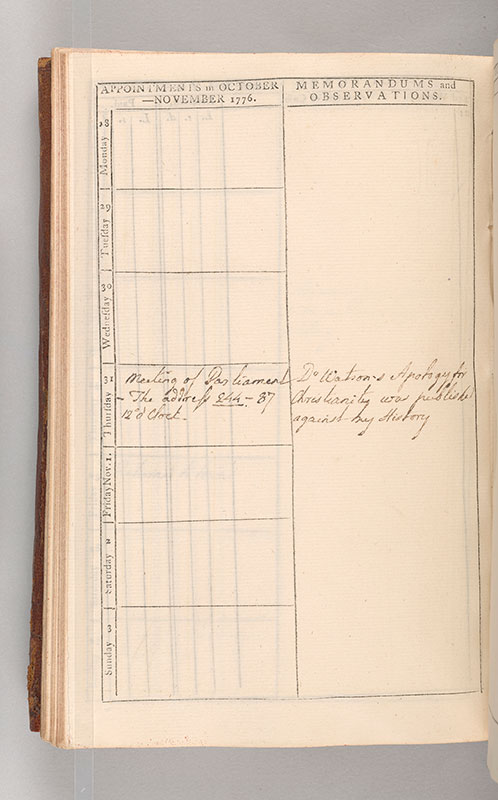 APPOINTMENTS in OCTOBER
—NOVEMBER 1776.
MEMORANDUMS and
OBSERVATIONS.
Monday 28
Tuesday 29
Wednesday 30
Thursday 31
Meeting of Parliament
- The address 244 - 87
12 o'Clock.
Dr Watson's Apology for
Christianity was publishe
against my History
Friday Nov. 1.
Saturday 2
Sunday 3